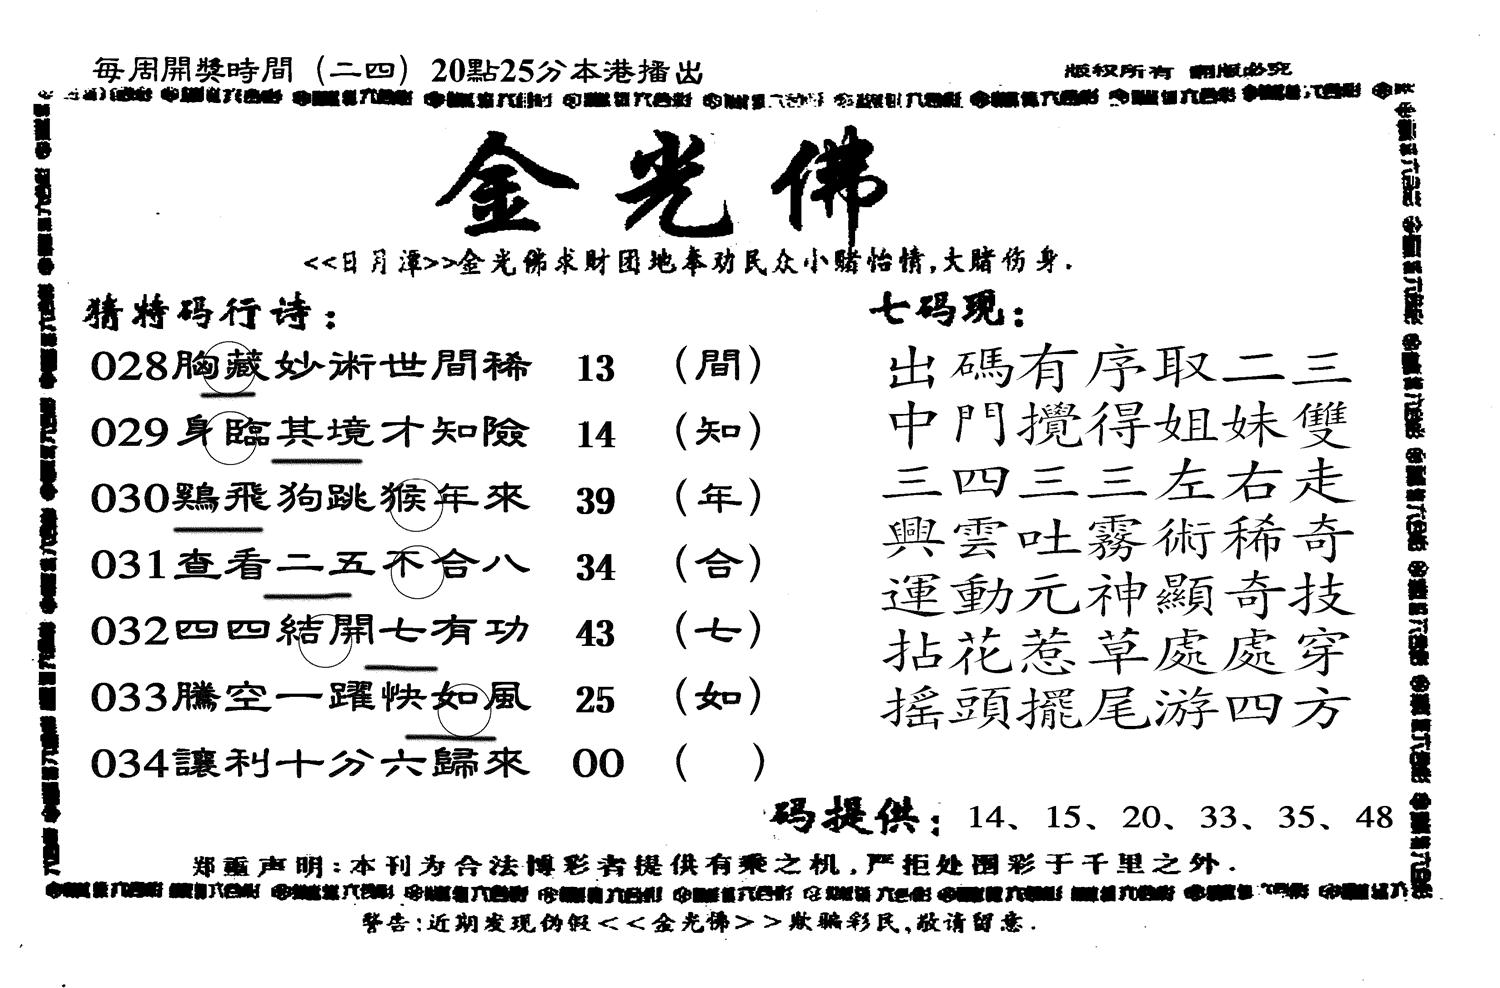 每周開獎時間（二四）20點25分本港播出
版权所有 翻版必究
金光佛
<<日月潭>>金光佛求财团地奉劝民众小赌怡情,大赌伤身.
猜特码行诗:
028胸藏妙術世間稀 13 (間)
029身臨其境才知險 14 (知)
030鷄飛狗跳猴年來 39 (年)
031查看二五不合八 34 (合)
032四四結開七有功 43 (七)
033騰空一躍快如風 25 (如)
034讓利十分六歸來 00 ( )
七码现:
出碼有序取二三
中門攪得姐妹雙
三四三三左右走
興雲吐霧術稀奇
運動元神顯奇技
拈花惹草處處穿
搖頭擺尾游四方
码提供: 14、15、20、33、35、48
郑重声明:本刊为合法博彩者提供有乘之机,严拒处围彩于千里之外.
警告:近期发现伪假<<金光佛>>欺骗彩民,敬请留意.